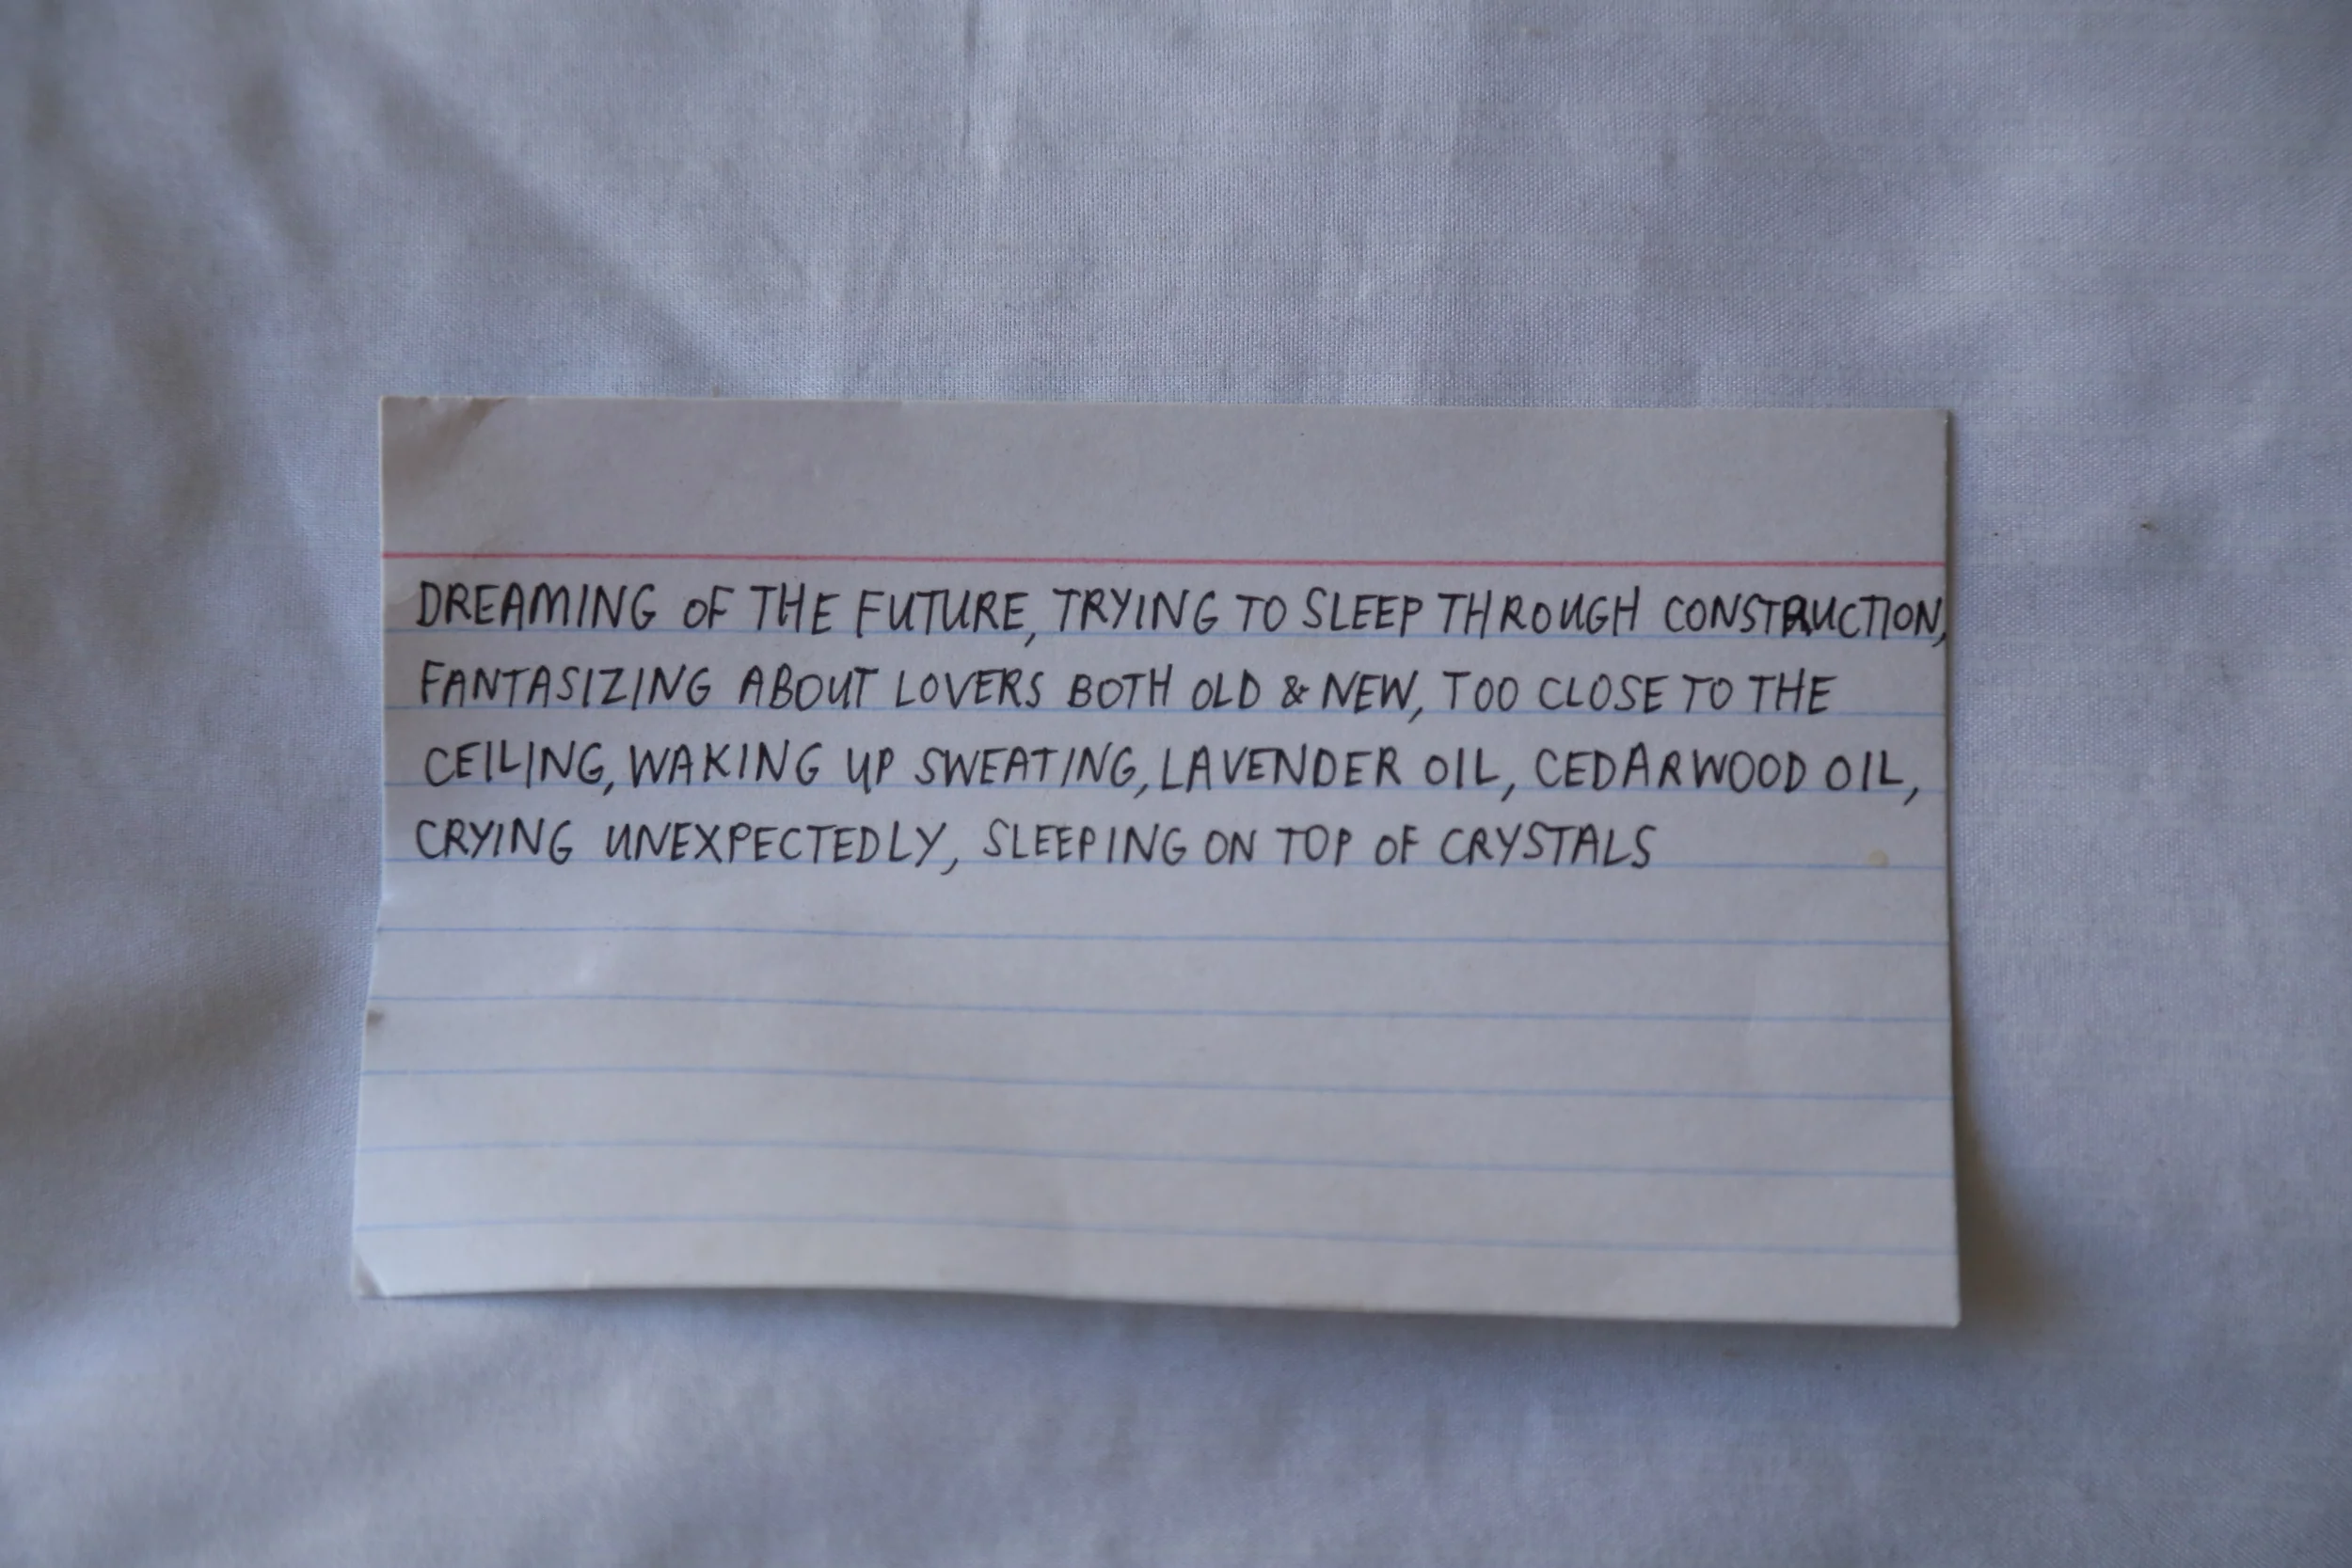 DREAMING OF THE FUTURE, TRYING TO SLEEP THROUGH CONSTRUCTION,
FANTASIZING ABOUT LOVERS BOTH OLD & NEW, TOO CLOSE TO THE
CEILING, WAKING UP SWEATING, LAVENDER OIL, CEDARWOOD OIL,
CRYING UNEXPECTEDLY, SLEEPING ON TOP OF CRYSTALS